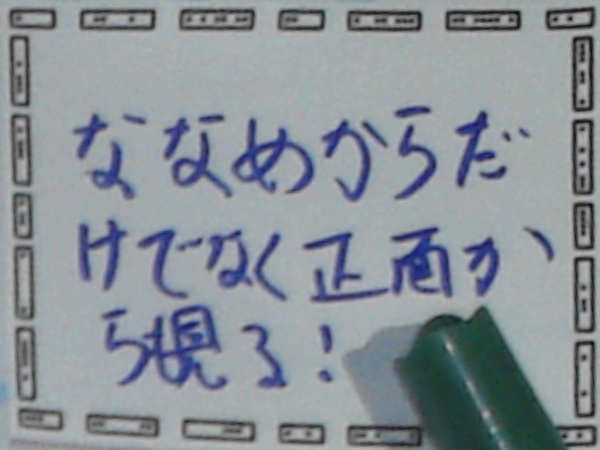 ななめからだ
けでなく正面か
ら視る!